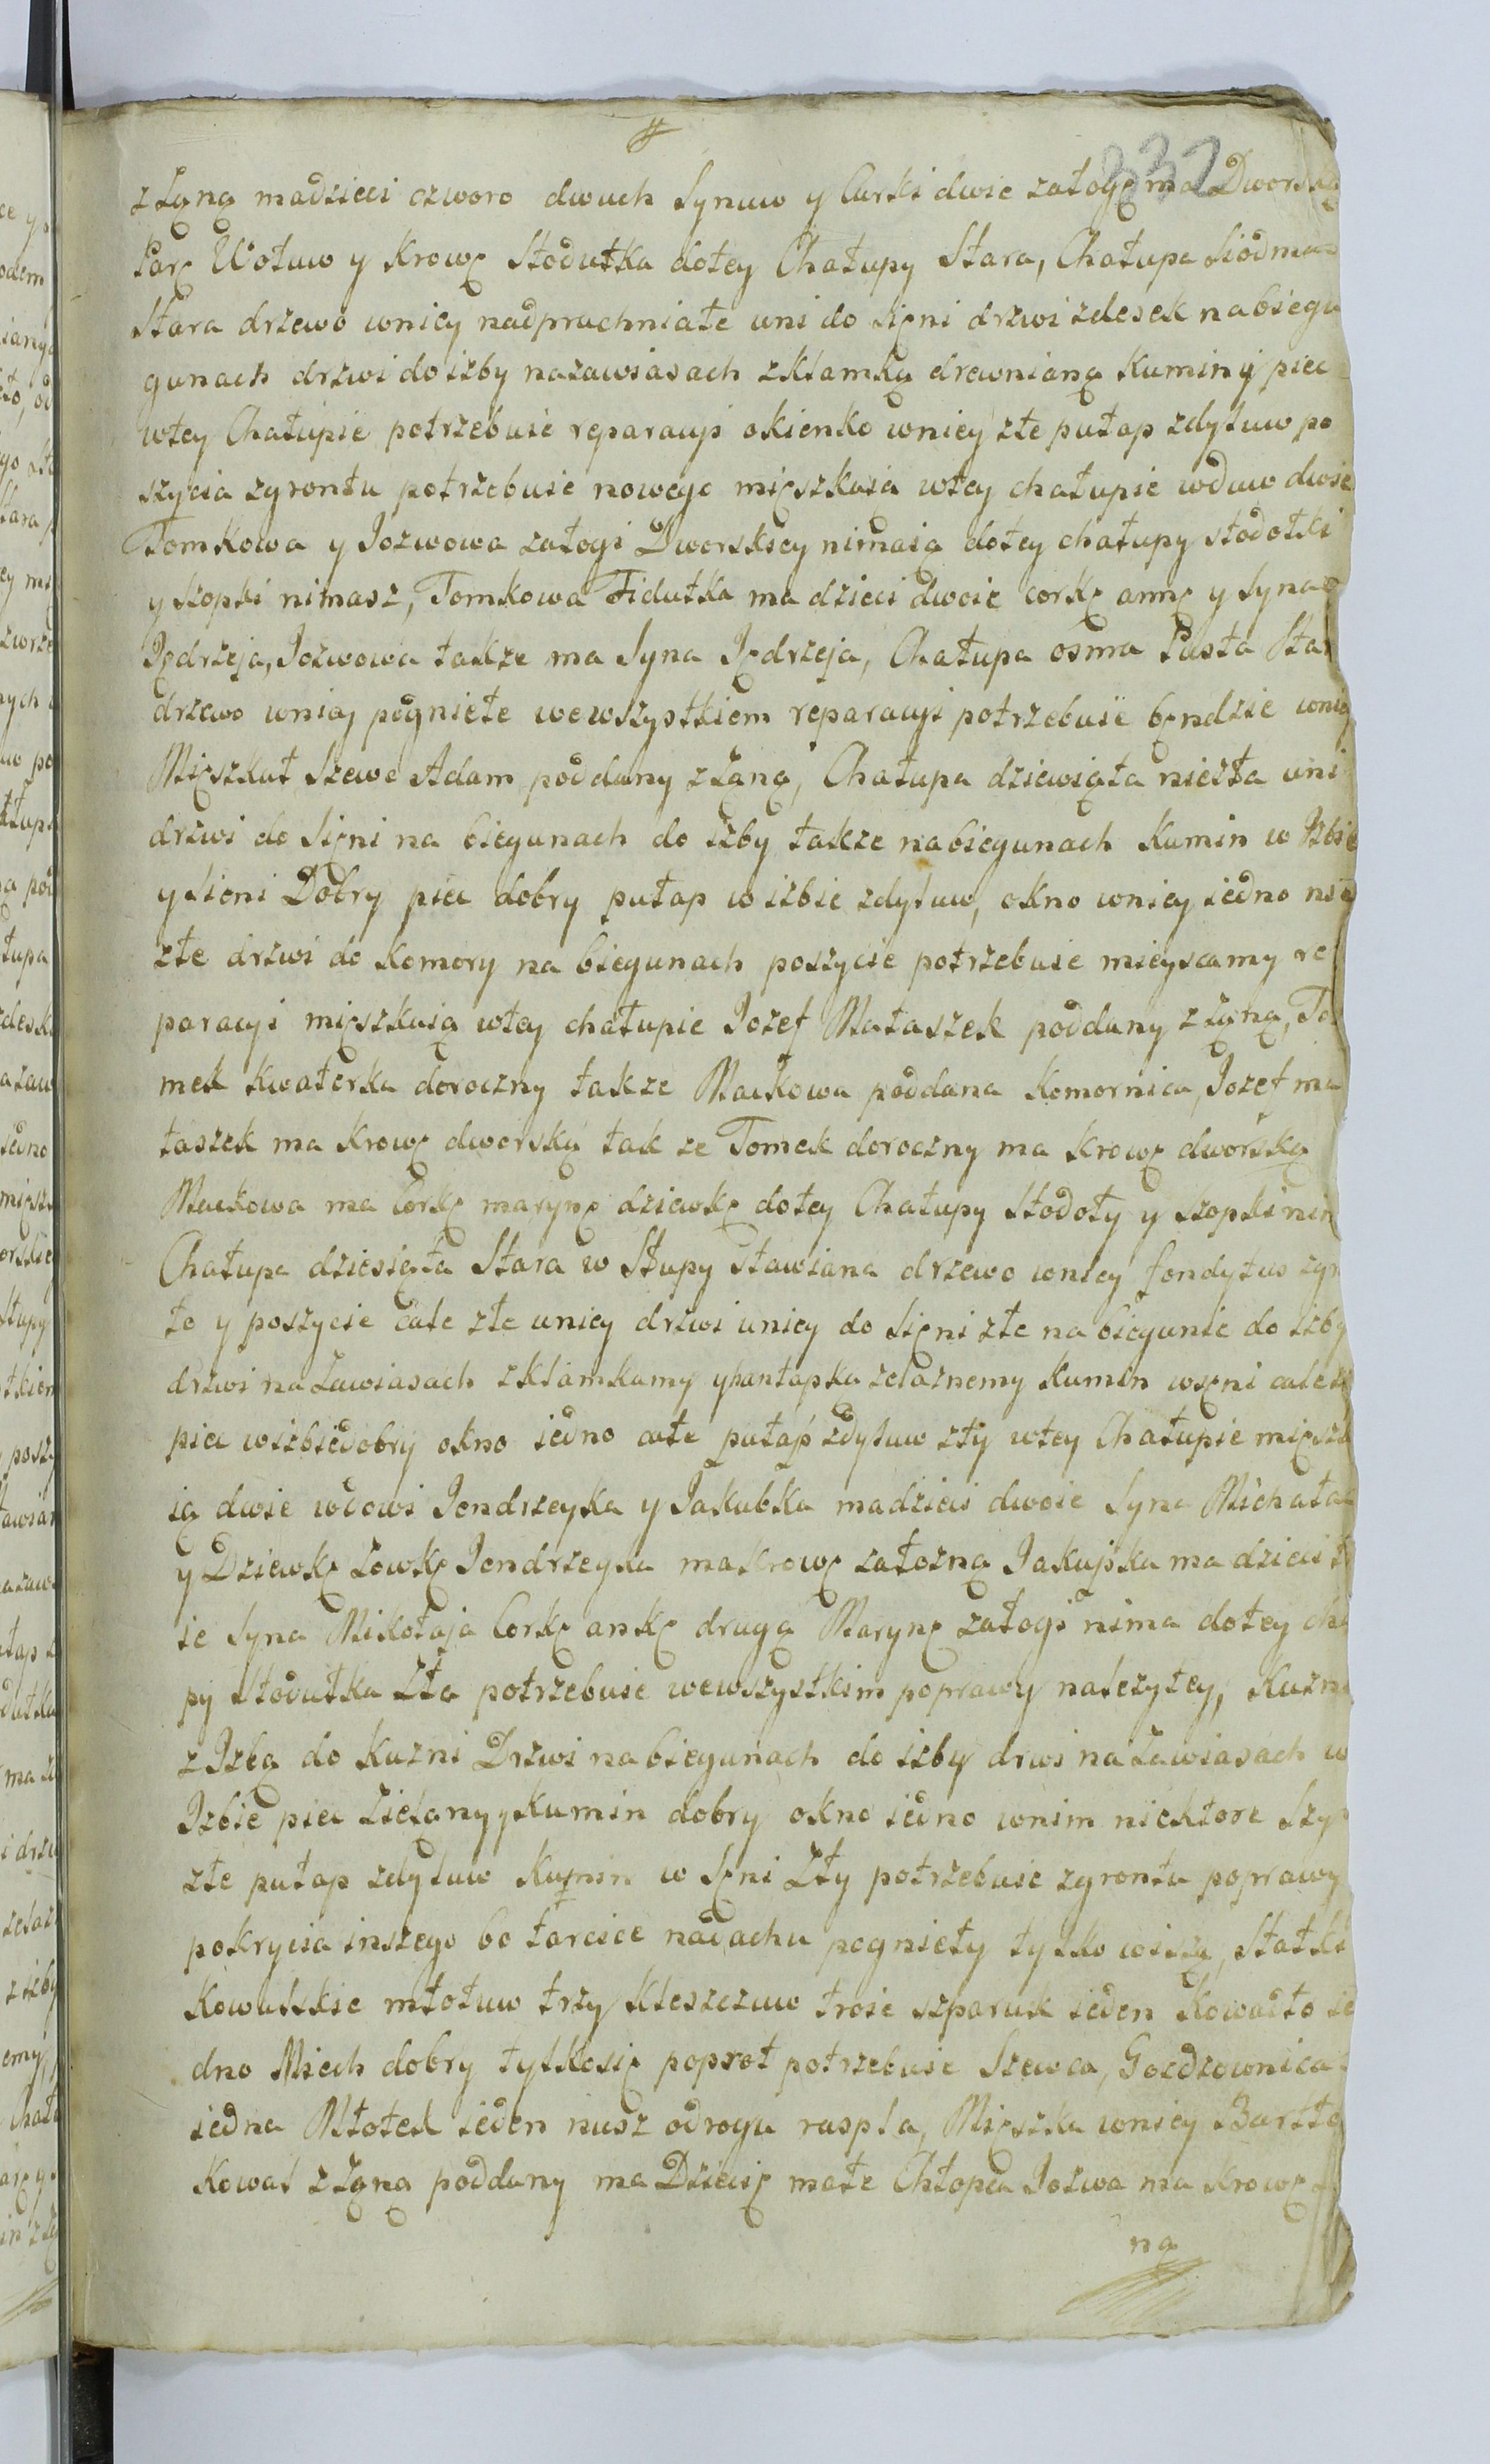 332
z Żąną madzieci czworo dwuch Synuw y Curki dwie załogę ma Dworską
Parę Wołuw y Krowę Stodułka dotey Chałupy Stara, Chałupa Siodma
Stara drzewo wniey nadpruchniałe uni do Sięni drzwi zdesek nabiegu
gunach drzwi do izby nazawiasach zklamką drewnianą Kumin y piec
wtey Chałupie potrzebuie reparacyi okienko wniey złe pułap zdyluw po
szycia zgrontu potrzebuie nowego mięszkaią wtey chałupie wduw dwie
Tomkowa y Jozwowa załogi Dworskiey nimaią dotey chałupy stodołki
y szopki nimasz, Tomkowa Fidułka ma dzieci dwoie corkę annę y Syna
Jędrzeja, Jozwowa takze ma Syna Jędrzeja, Chałupa osma Pusta Star
drzewo wniey pogniełe wewszystkiem reparacyi potrzebuie bęndzie wniey
Mięszkał Szewc Adam poddany z Żąną, Chałupa dziewiąta niezła uni
drzwi do Sięni na biegunach do izby takze nabiegunach Kumin w Izbie
y Sieni Dobry piec dobry pułap w izbie zdyluw, okno wniey iedno nie
złe drzwi do Komory na biegunach poszycie potrzebuie mieyscamy re
paracyi mięszkaią wtey chałupie Jozef Mataszek poddany z Żąną, To
mek Kwaterka doroczny takze Maćkowa poddana Komornica, Jozef ma
taszek ma Krowę dworską tak ze Tomek doroczny ma Krowę dworską
Maćkowa ma Corkę marynę dziewkę dotey Chałupy Stodoły y szopki nim
Chałupa dziesiąta Stara w Słupy stawiana drzewo wniey fondytus zgni
łe y poszycie całe złe uniey drzwi uniey do Sięni złe na biegunie do izby
drzwi na Zawiasach zklamkamy y hantapka zelaznemy Kumin wsęni całe zł
piec wizbiedobry okno iedno całe pułap zdyluw zły wtey Chałupie mięszka
ią dwie wdowi Jendrzeyka y Jakubka madzieci dwoie Syna Michała
y Dziewkę Zowkę Jendrzeyka makrowę załozną Jakupka ma dzieci tr
ie Syna Mikołaja Corkę ankę drugą Marynę załogi nima dotey cha
py Stodułka Zła potrzebuie wewszystkim poprawy nalezytey, Kuzni
z Izbą do Kuzni Drzwi nabiegunach do izby drwi na Zawiasach w
Izbie piec Zielany y Kumin dobry okno iedno wnim niektore Szyp
złe pułap zdyluw Kumin w Sęni Zły potrzebuie zgrontu poprawy
pokrycia inszego bo tarcice nadachu pogniety tylko wiszą, Statki
Kowalskie młotuw trzy Kleszczuw troie szparuk ieden Kowadło ie
dno Miech dobry tylkosię poprot potrzebuie Szewca, Gozdzownica
iedna Młotek ieden nusz odrogu raspla, Mięszka wniey Bartło
Kowal z Żąną poddany ma Dziecię małe Chłopca Jozwa ma Krowę
ną